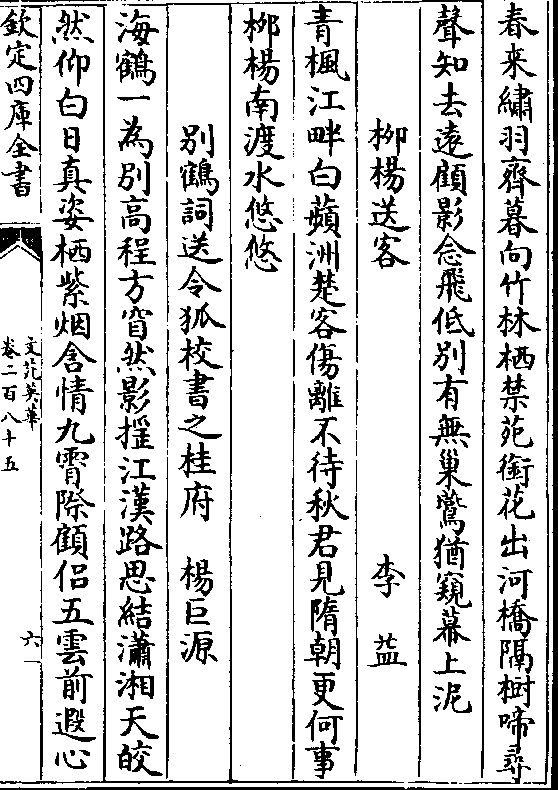 春来繡羽齊暮向竹林栖禁苑銜花出河橋隔樹啼尋
聲知去遠顧影念飛低别有無巢鷰猶窺幕上泥
栁楊送客　李益
青楓江畔白蘋洲楚客傷離不待秋君見隋朝更何事
栁楊南渡水悠悠
别鶴詞送令狐校書之桂府　楊巨源
海鶴一為别高程方窅然影揺江漢路思結瀟湘天皎
然仰白日真姿栖紫烟含情九霄際顧侣五雲前遐心
欽定四庫全書
文苑英華
卷二百八十五
六